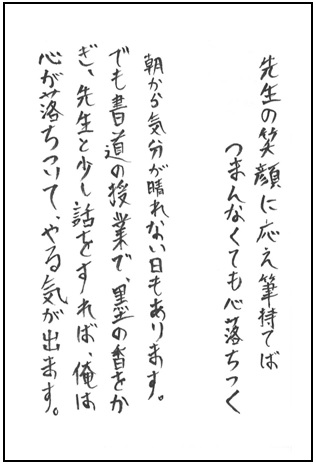 先生の笑顔に応え筆持てば
つまんなくても心落ちつく
朝から気分が晴れない日もあります。
でも書道の授業で、墨の香をか
ぎ、先生と少し話をすれば、俺は
心が落ちついて、やる気が出ます。